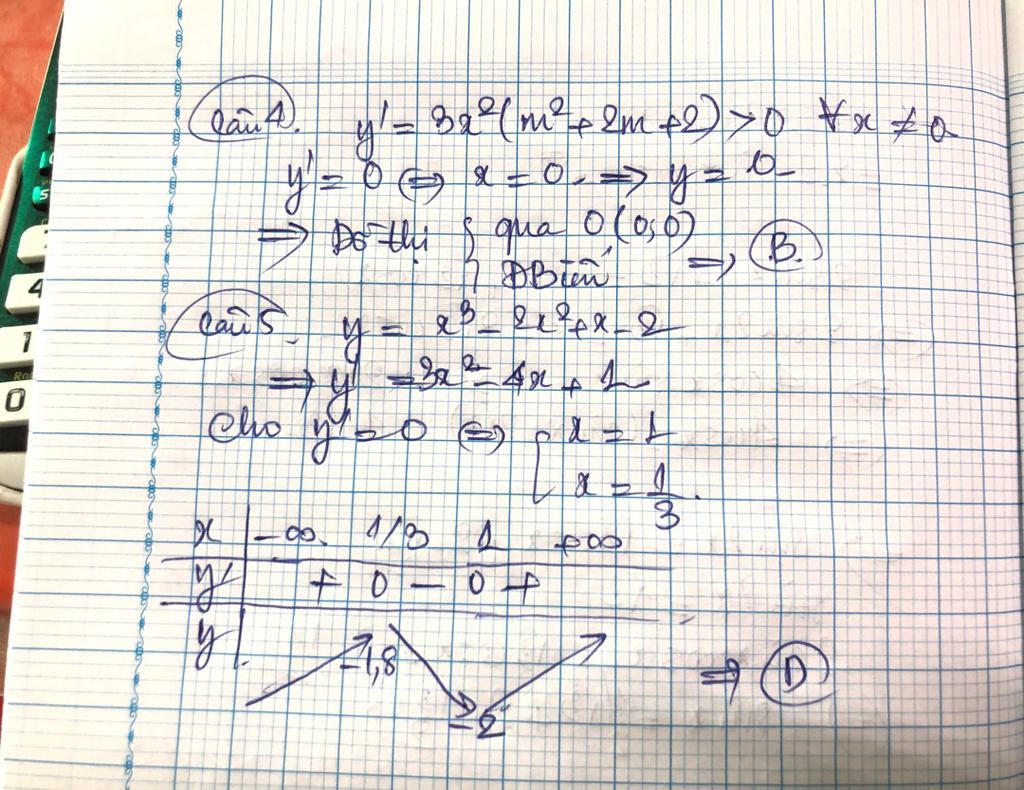 Câu 4. y' = 3x²(m² + 2m + 2) > 0 ∀x ≠ 0
y' = 0 ⇔ x = 0. ⇒ y = 0
⇒ Đồ thị { qua O(0,0)
ĐBiến ⇒ B.
Câu 5. y = x³ - 2x² + x - 2
⇒ y' = 3x² - 4x + 1
Cho y' = 0 ⇔ [ x = 1
x = 1/3.
x | -∞ 1/3 1 +∞
y' | + 0 - 0 +
y |
-1,8 ⇒ D
-2
4
1
0